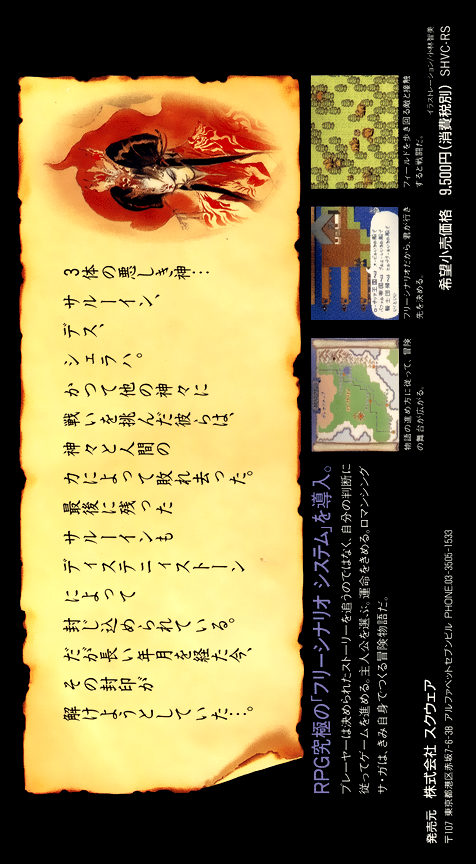 3体の悪しき神…
サルーイン、
デス、
シェラハ。
かつて他の神々に
戦いを挑んだ彼らは、
神々と人間の
力によって敗れ去った。
最後に残った
サルーインも
ディステニィストーン
によって
封じ込められている。
だが長い年月を経た今、
その封印が
解けようとしていた…。
RPG究極の「フリーシナリオ システム」を導入。
プレーヤーは決められたストーリーを追うのではなく、自分の判断に
従ってゲームを進める。主人公を選ぶ。運命をきめる。ロマンシング
サ・ガは、きみ自身でつくる冒険物語だ。
物語の進め方に従って、冒険
の舞台が広がる。
フリーシナリオだから、君が行き
先を決める。
フィールドを歩き回る敵と接触
すると戦闘だ。
発売元 株式会社 スクウェア
〒107 東京都港区赤坂7-6-38 アルファベットセブンビル PHONE.03-3505-1533
イラストレーション/小林智美
希望小売価格 9,500円(消費税別) SHVC-RS